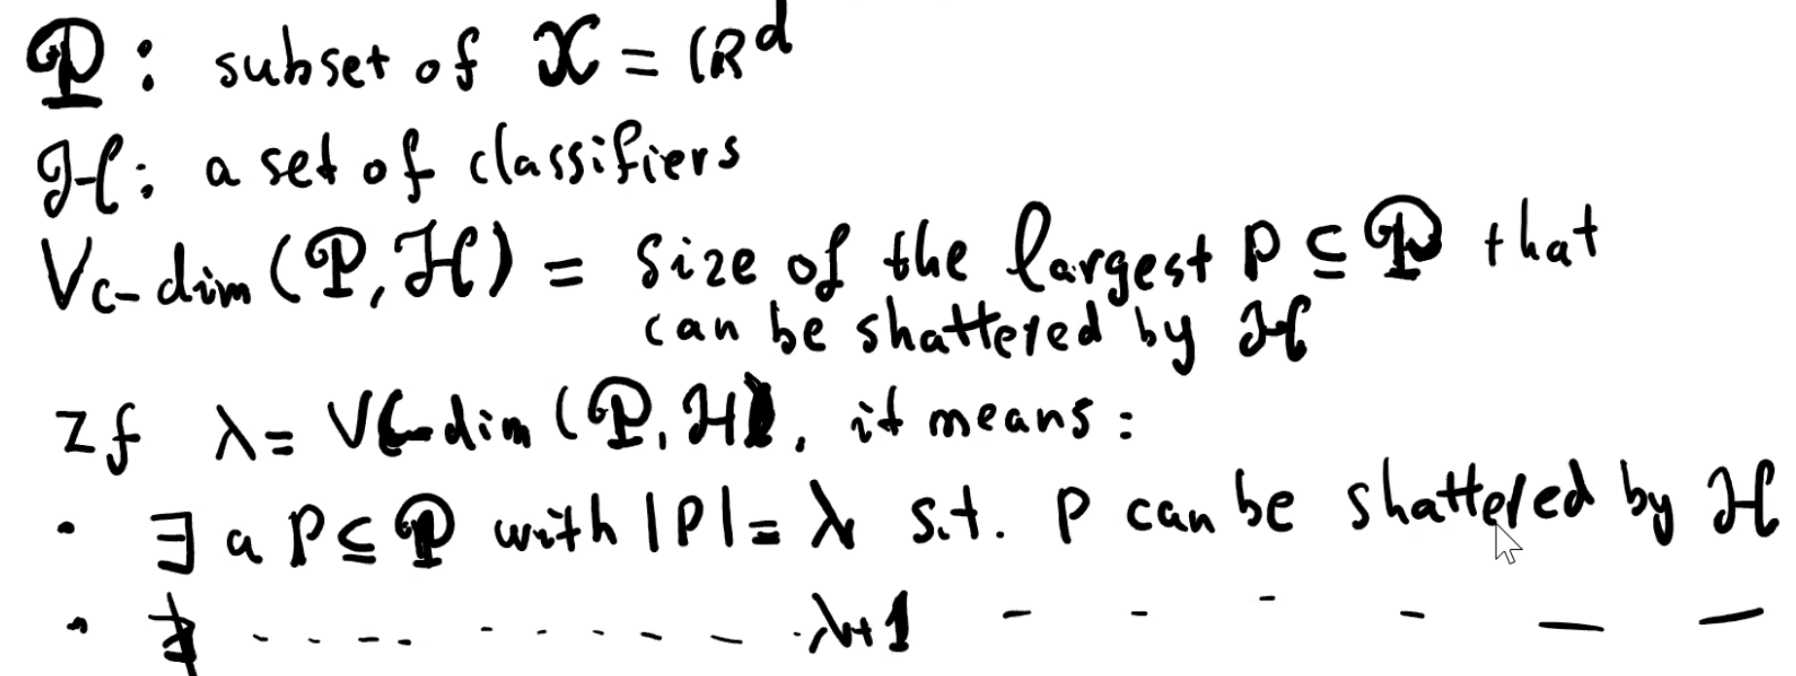 𝒫: subset of 𝒳 = ℝᵈ
ℋ: a set of classifiers
VC-dim (𝒫, ℋ) = size of the largest P ⊆ 𝒫 that
can be shattered by ℋ
If λ = VC-dim (𝒫, ℋ), it means:
• ∃ a P ⊆ 𝒫 with |P| = λ s.t. P can be shattered by ℋ
• ∄ - - - - - - - - - - λ+1 - - - - - -